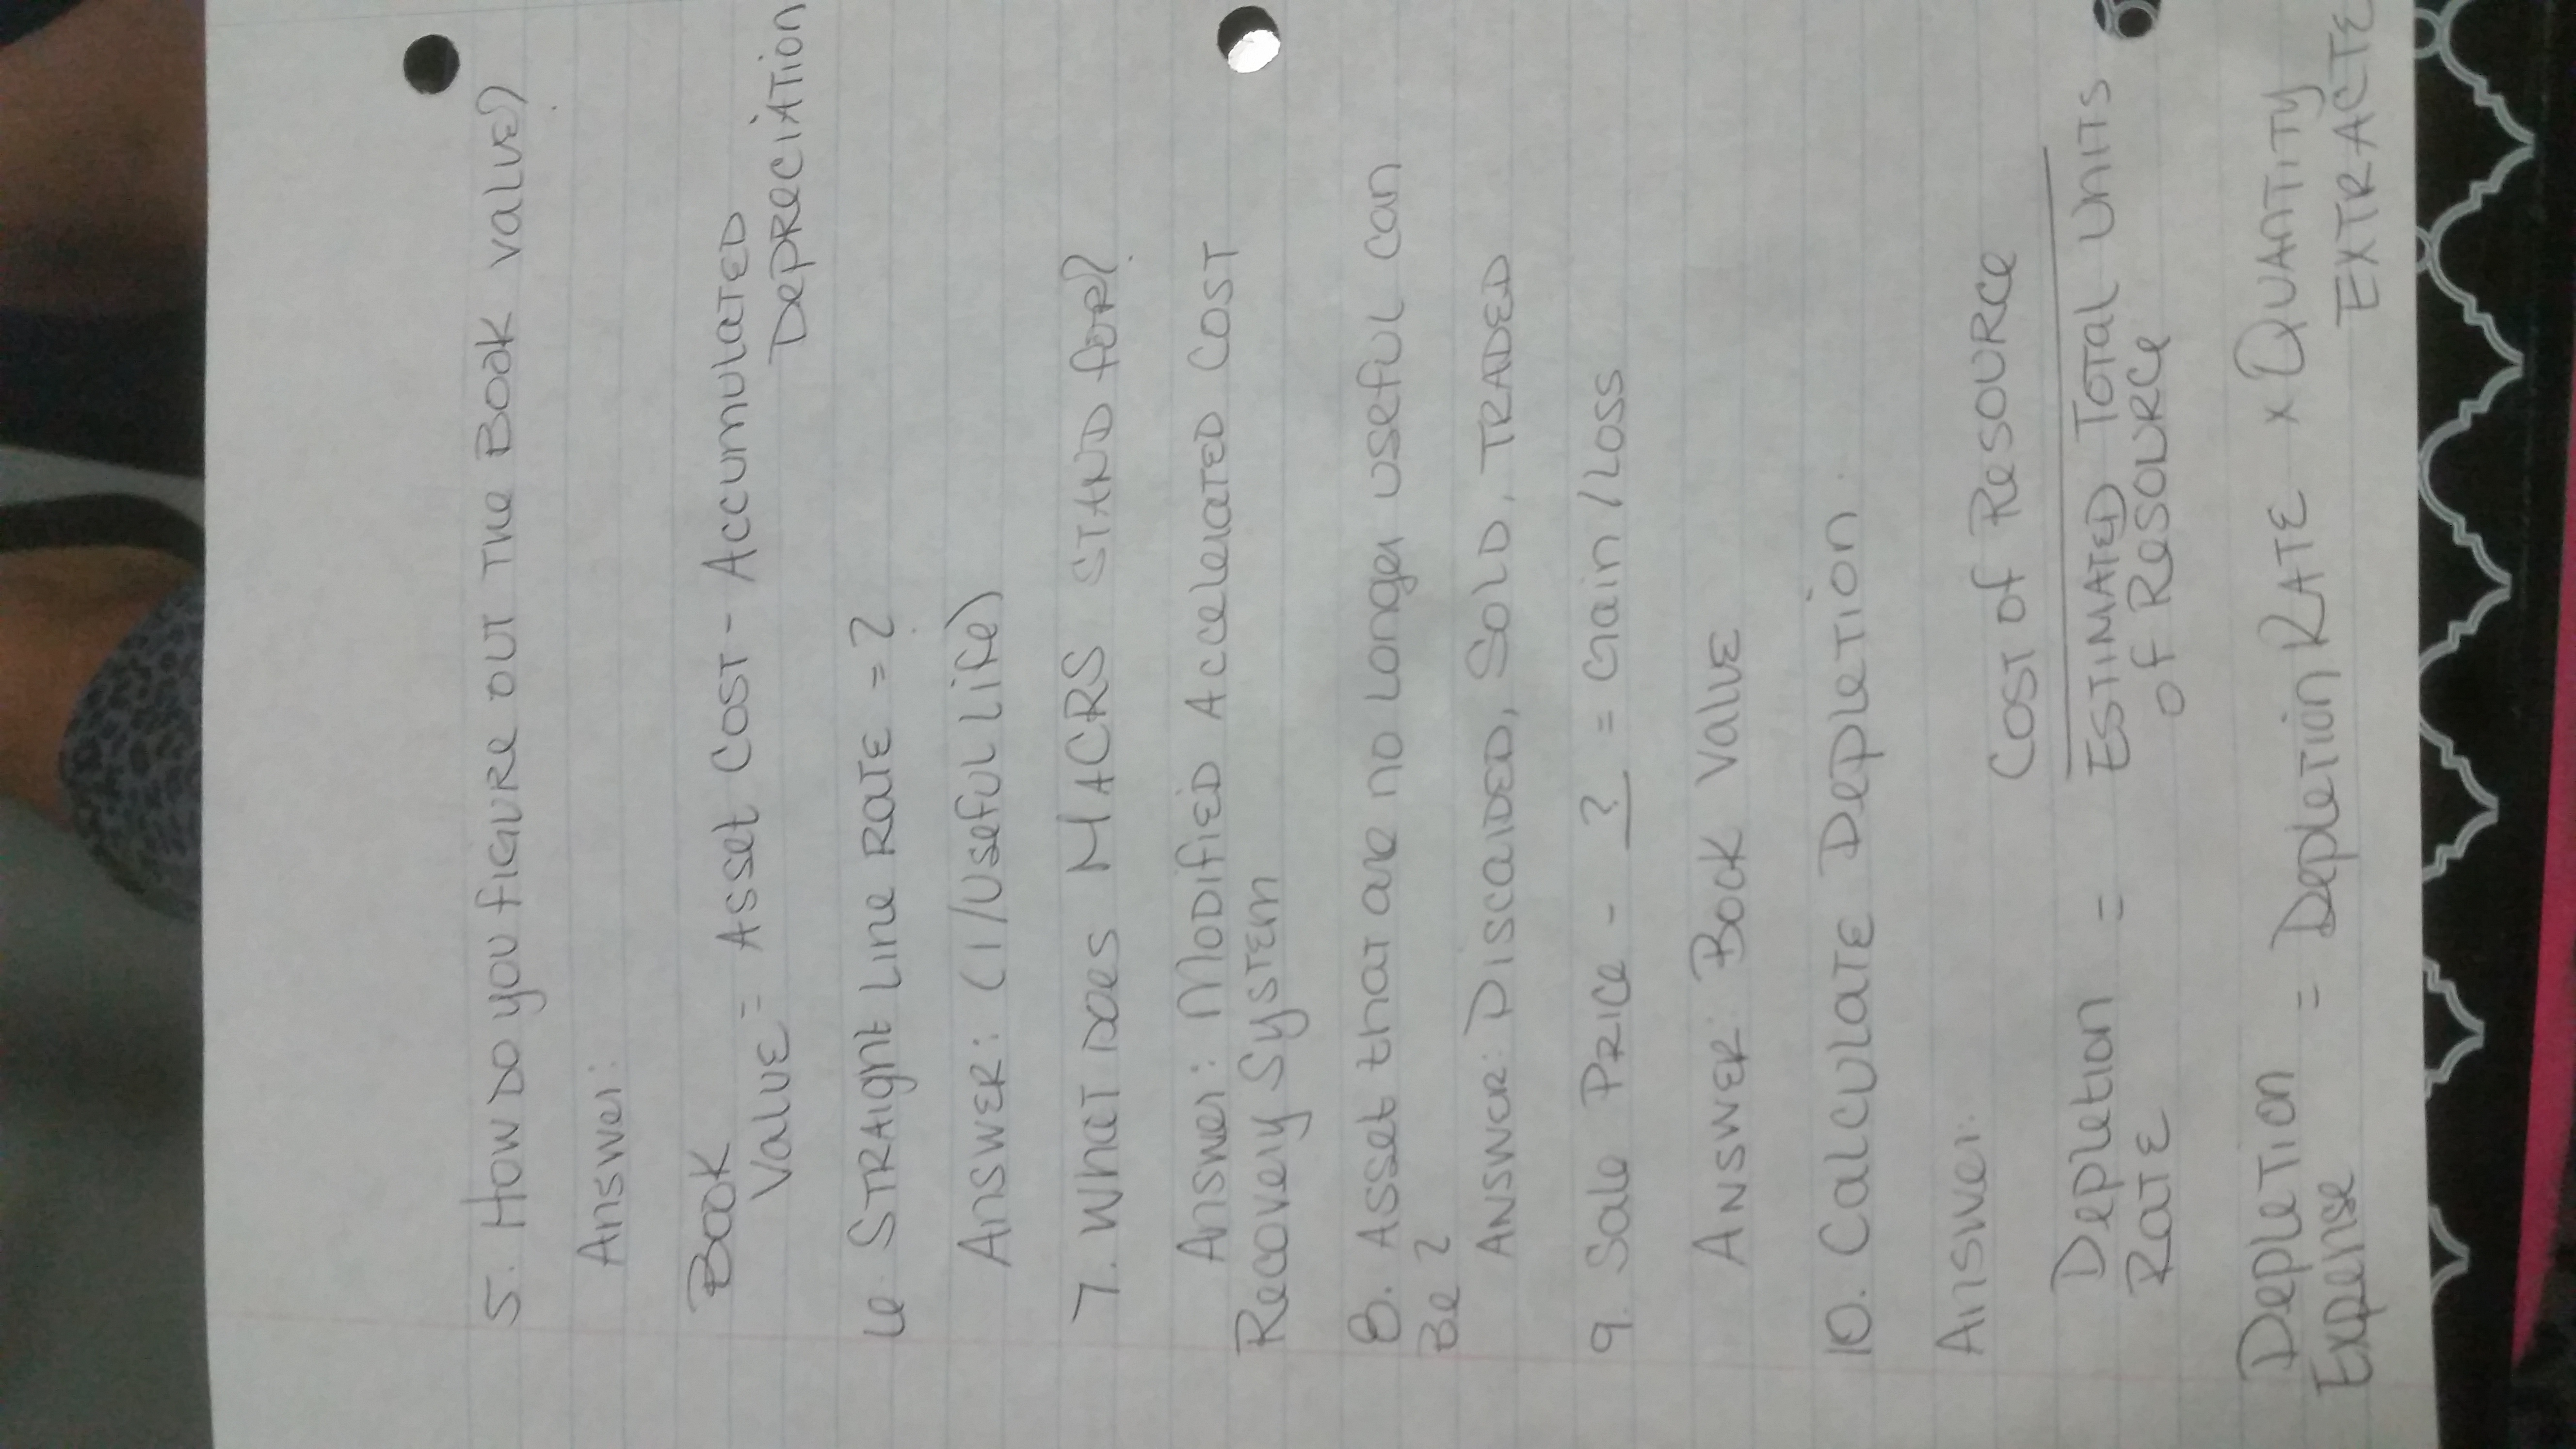 5. How DO you figure out The Book value?
Answer:
Book
Value = Asset Cost - Accumulated
Depreciation
6. Straight Line Rate = ?
Answer: (1/Useful Life)
7. What Does MACRS Stand for?
Answer: Modified Accelerated Cost
Recovery System
8. Asset that are no longer useful can
Be?
Answer: Discarded, Sold, Traded
9. Sale Price - ? = Gain/Loss
Answer: Book Value
10. Calculate Depletion.
Answer:
Depletion Rate = Cost of Resource
Estimated Total Units
of Resource
Depletion Expense = Depletion Rate x Quantity
Extracte